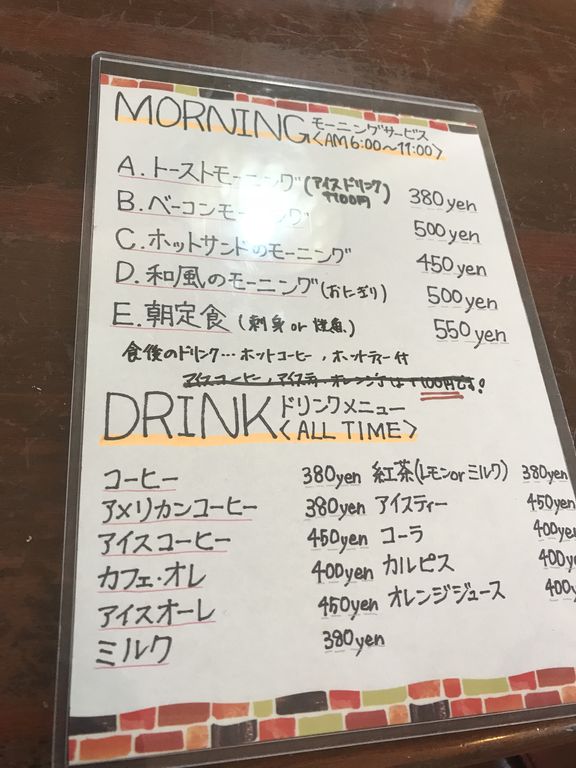 MORNING モーニングサービス
<AM6:00〜11:00>
A. トーストモーニング(アイスドリンク 380yen
+100円
B. ベーコンモーニング 500yen
C. ホットサンドのモーニング 450yen
D. 和風のモーニング(おにぎり) 500yen
E. 朝定食 (刺身 or 焼魚) 550yen
食後のドリンク…ホットコーヒー, ホットティー付
アイスコーヒー, アイスティ・オレンジは+100円です!
DRINK ドリンクメニュー
<ALL TIME>
コーヒー 380yen 紅茶(レモンorミルク) 380yen
アメリカンコーヒー 380yen アイスティー 450yen
アイスコーヒー 450yen コーラ 400yen
カフェ・オレ 400yen カルピス 400y
アイスオーレ 450yen オレンジジュース 400y
ミルク 380yen